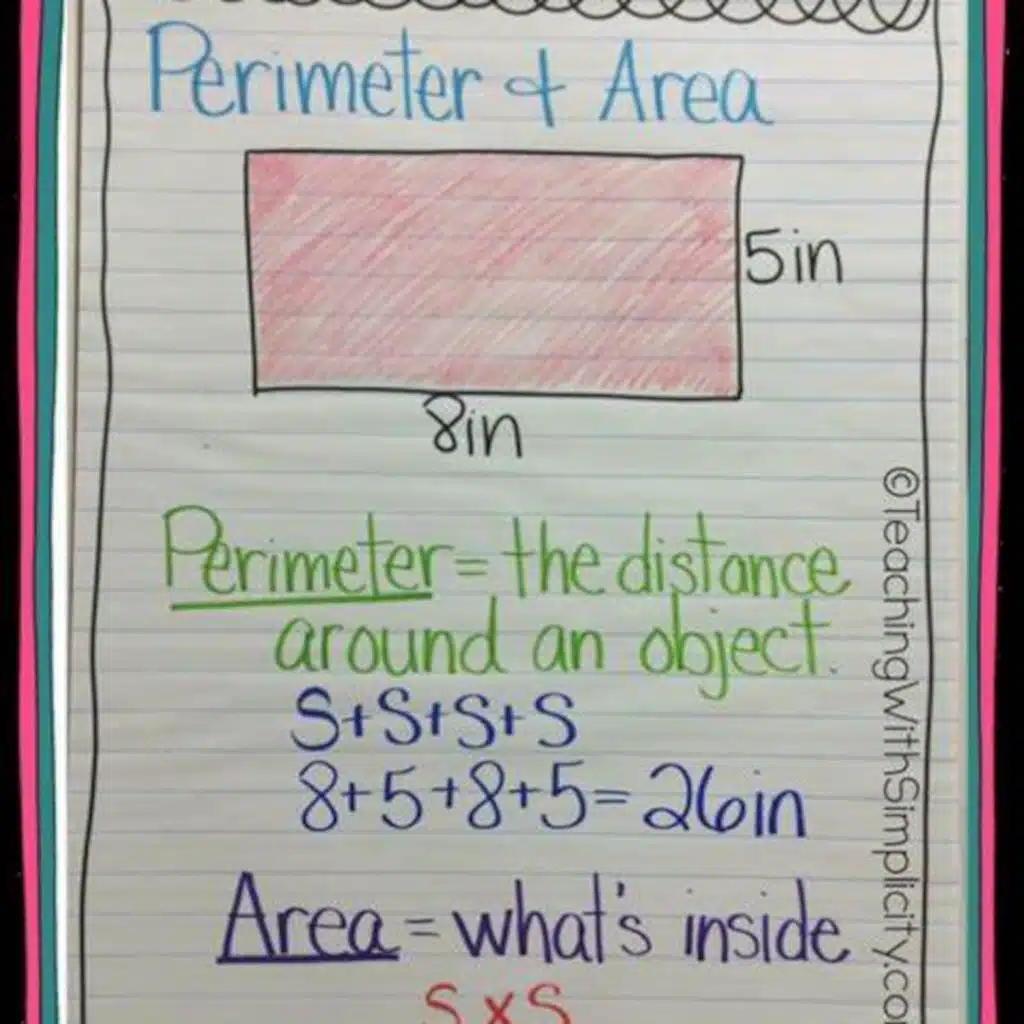 Perimeter & Area
5in
8in
Perimeter = the distance
around an object.
S+S+S+S
8+5+8+5=26in
Area = what's inside
S x S
©TeachingWithSimplicity.co